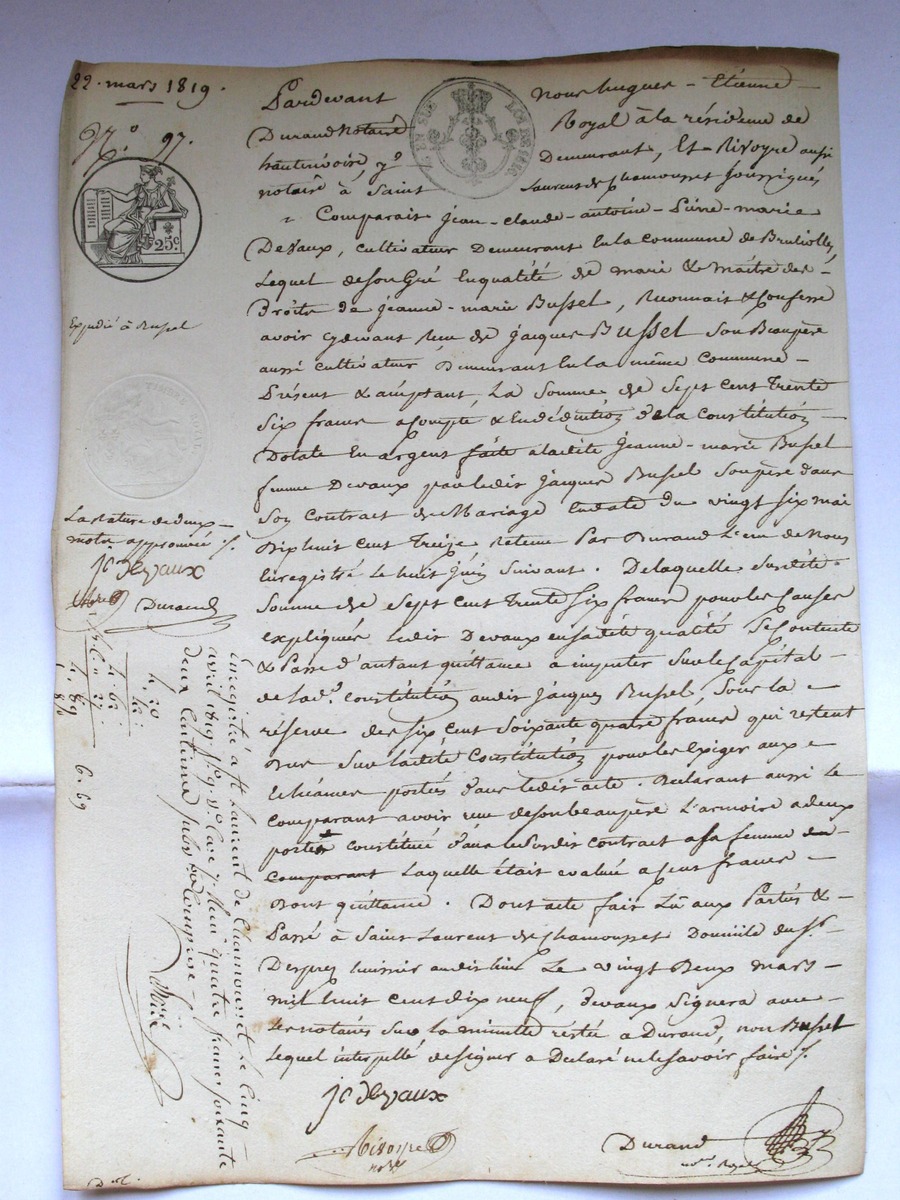 22. mars 1819.
N.° 97.
25c
Expédié à Bussel
TIMBRE ROYAL
La rature de deux
mots approuvée
jc devaux
Durand
Pardevant Nous hugues - Etienne
Durand Notaire Royal à la résidence de
hauterivoire y Demeurant, Et Rivoyre aussi
notaire à Saint Laurent de Chamousset soussignés
Comparait jean-claude-antoine-Pierre-marie
Devaux, cultivateur Demeurant En la Commune de Brulioles,
Lequel de son Gré En qualité de mari & maître des
Droits de jeanne-marie Bussel, Reconnait & Confesse
avoir cydevant Reçu de jacques Bussel son Beaupère
aussi cultivateur, Demeurant En la même Commune
Présent & acceptant, La Somme de Sept Cent Trente
Six francs acompte & En déduction de la Constitution
Dotale En argent faite a ladite jeanne-marie Bussel
femme Devaux par ledit jacques Bussel Son père dans
Son Contract de Mariage En date du vingt six mai
Dix huit Cent Treize, Retenu Par Durand L'un de Nous
Enregistré Le huit juin Suivant. De laquelle Susdite
Somme de Sept Cent Trente Six francs pour les Causes
expliquées Ledit Devaux en sadite qualité Se Contente
& Passe d'autant quittance a imputer Sur le Capital
de lad. constitution audit jacques Bussel, Sous la
réserve des Six Cent Soixante quatre francs qui restent
Dus Sur ladite Constitution pour les Exiger aux
Echéances portées dans ledit acte. Déclarant aussi Le
comparant avoir reçu de son beaupère L'armoire a deux
portes constituée dans le Susdit contract a sa femme
comparant Laquelle était évaluée a Cent francs
Dont quittance. Dont acte fait Lu aux Parties &
Passé à Saint Laurent de Chamousset Domicile du S.
Desprez huissier audit lieu Le vingt Deux mars
mil huit Cent Dix neuf, Devaux Signera avec
Les notaires Sur la minutte restée a Durand, non Bussel
Lequel interpellé de signer a Déclaré ne le savoir faire
jc devaux
Rivoyre
Durand
not. Royal
Enregistré a St. Laurent de Chamousset Le Cinq
avril 1819 f.° 9 V.° Case 7 Reçu quatre francs soixante
deux Centimes Subv.on Comprise
4. 20
42
4. 62
6. 69